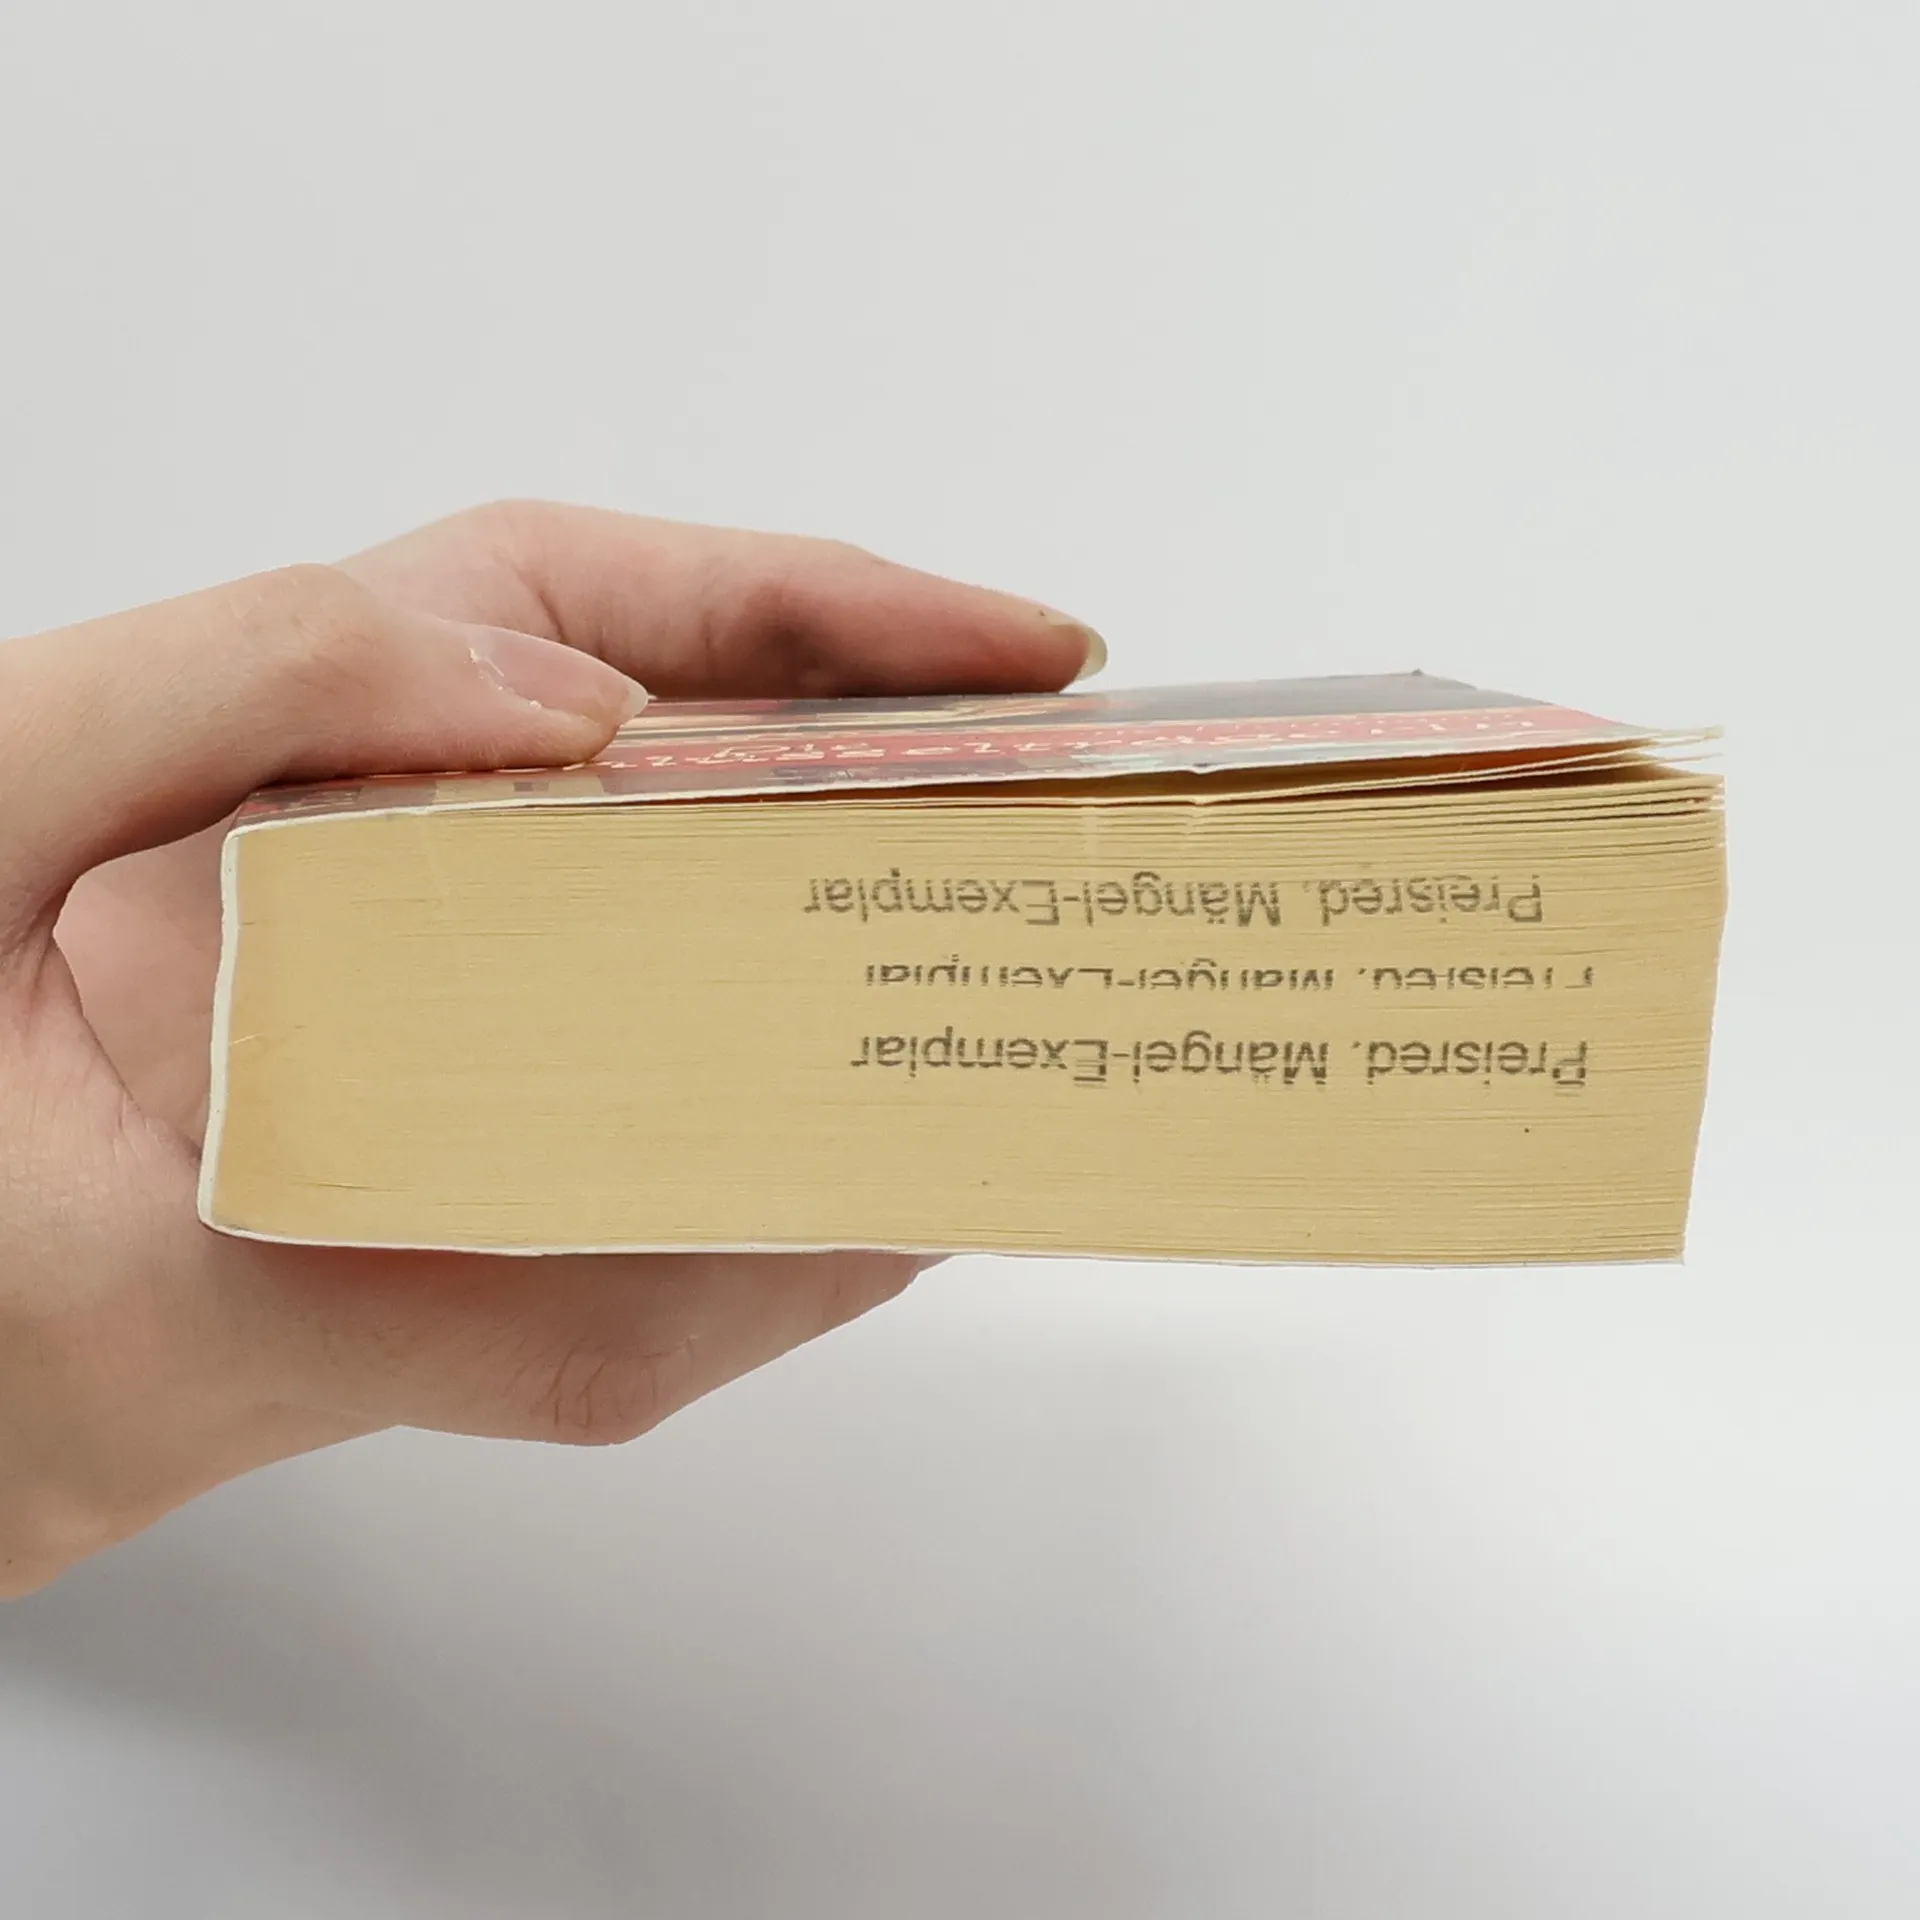 Preisred. Mängel-Exemplar
Preisred. Mängel-Exemplar
Preisred. Mängel-Exemplar